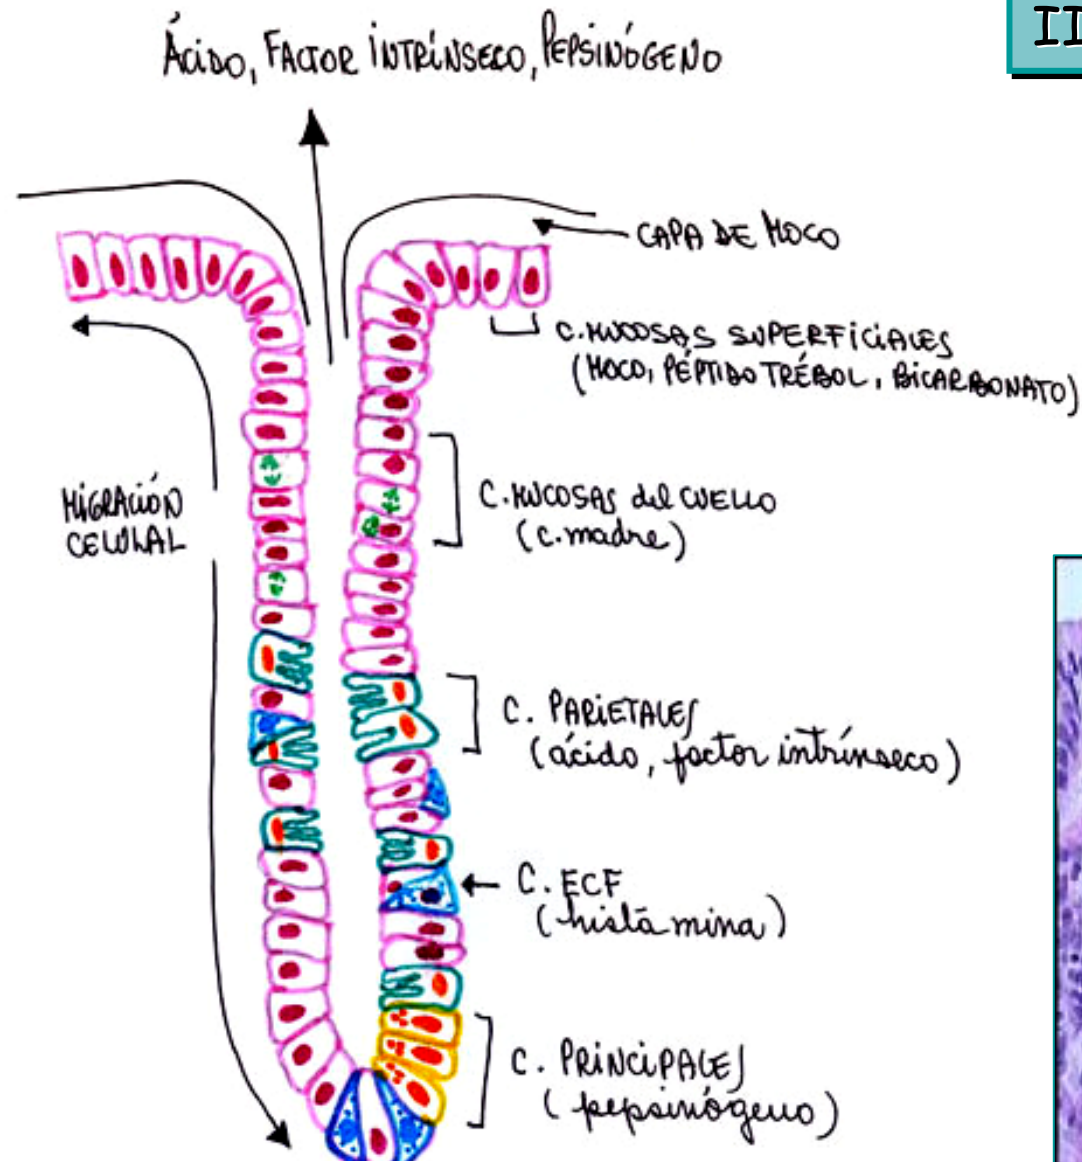 II
Ácido, FACTOR INTRÍNSECO, PEPSINÓGENO
CAPA DE MOCO
C. MUCOSAS SUPERFICIALES
(MOCO, PÉPTIDO TRÉBOL, BICARBONATO)
MIGRACIÓN
CELULAL
C. MUCOSAS del CUELLO
(c. madre)
C. PARIETALES
(ácido, factor intrínseco)
C. ECF
(histamina)
C. PRINCIPALES
(pepsinógeno)